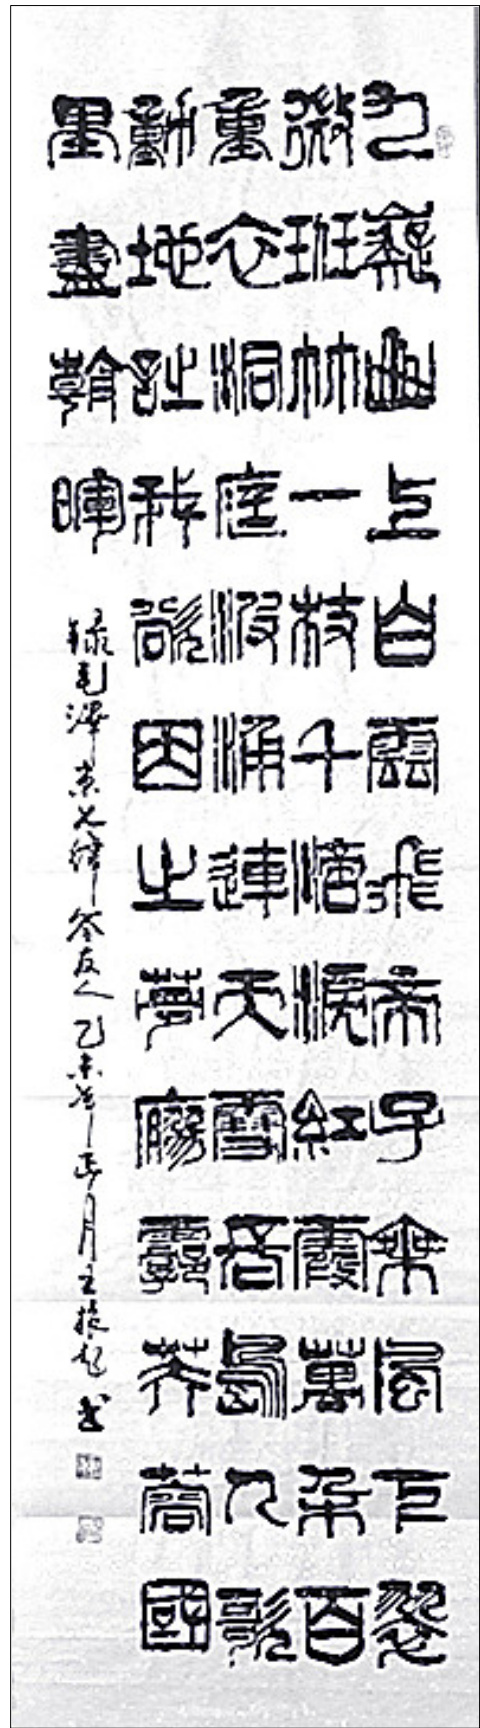 九嶷山上白雲飛帝子乘風下翠
微班竹一枝千滴淚紅霞萬朵百
重衣洞庭波涌連天雪長島人歌
動地詩我欲因之夢廖霩芙蓉國
里盡朝暉
録毛澤東七律答友人乙未年正月王振起書